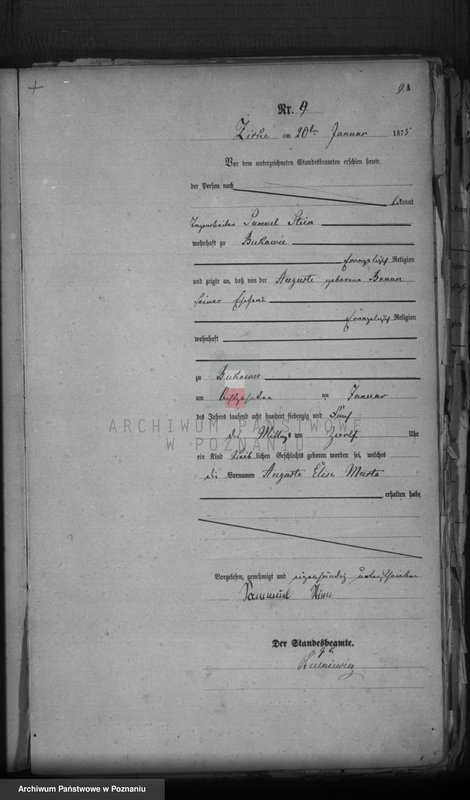 9
Nr. 9
Zirke am 20ten Januar 1875
Vor dem unterzeichneten Standesbeamten erschien heute,
der Person nach
kannt
Samuel Stein
wohnhaft zu Bukowce
evangelisch Religion
und zeigte an, daß von der Auguste geborene Braun
seiner Ehefrau
evangelisch Religion
wohnhaft
zu Bukowce
am achtzehnten im Januar
des Jahres tausend acht hundert siebenzig und Fünf
Mittags um zwölf Uhr
ein Kind weiblichen Geschlechts geboren worden sei, welches
die Vornamen Auguste Elise
erhalten habe
Vorgelesen, genehmigt und eigenhändig unterschrieben
Samuel Stein
Der Standesbeamte.
ARCHIWUM PAŃSTWOWE
W POZNANIU
Archiwum Państwowe w Poznaniu